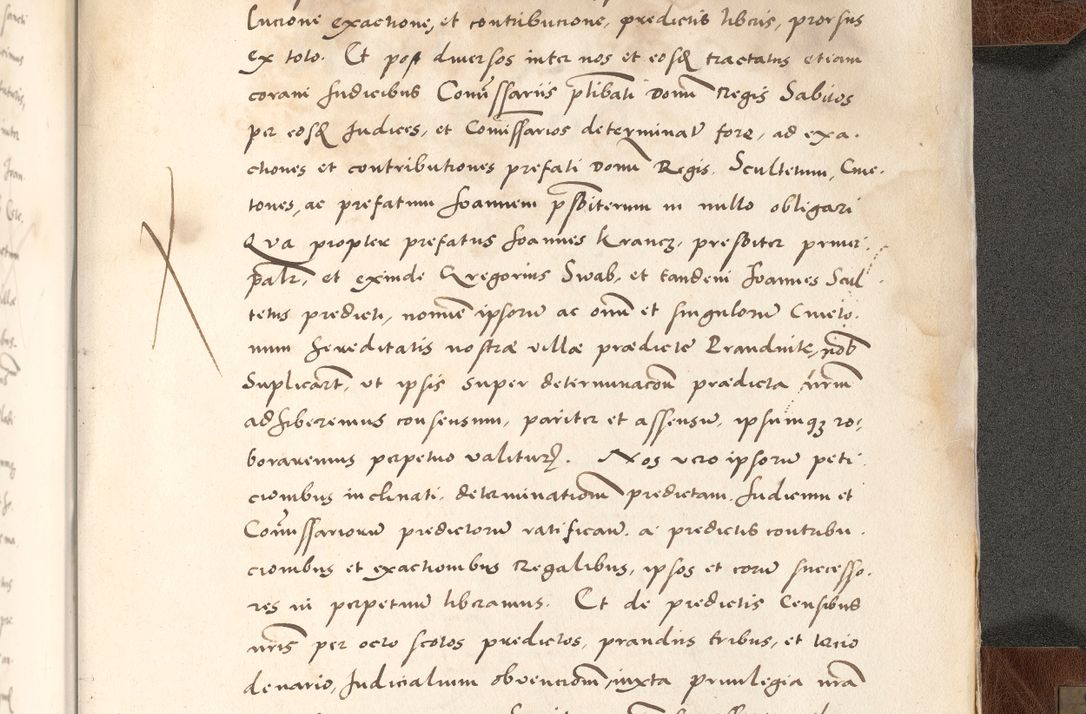 lucione exactione, et contribucione, predictis libris, prorsus
ex toto. Et post diversos inter nos et eosd tractatus etiam
coram Judicibus Comissariis ptibati Domi Regis Sabitos
per eosd Judices, et Comissarios determinat fore, ad exa-
ctiones et contributiones prefati Domi Regis. Scultetum, Cme-
tones, ac prefatum Joannem psbiterum in nullo obligari
Qua propter prefatus Joannes Krancz, presbiter princi-
palr, et exinde Gregorius Swab, et tandem Joannes Scul-
tetus predicti, nomine ipsorum ac omni et singulorum Cmeto-
num hereditatis nostræ villæ prædicte Prandnik, nob
Suplicart, ut ipsis super determinacom prædicta nrm
adhiberemus consensum, pariter et assensum, ipsumq3 ro-
boraremus perpetuo valitur. Nos vero ipsorum peti-
cionibus inclinati, determinationem predictam, Judicum et
Comissariorum predictorum ratificam, a predictis contribu-
cionibus et exactionibus Regalibus, ipsos et eorum successo-
res in perpetuum liberamus. Et de predictis Censibus
nris per octo scotos predictos, prandiis tribus, et tercio
denario, Judicialium obvencionm, iuxta privilegia nra